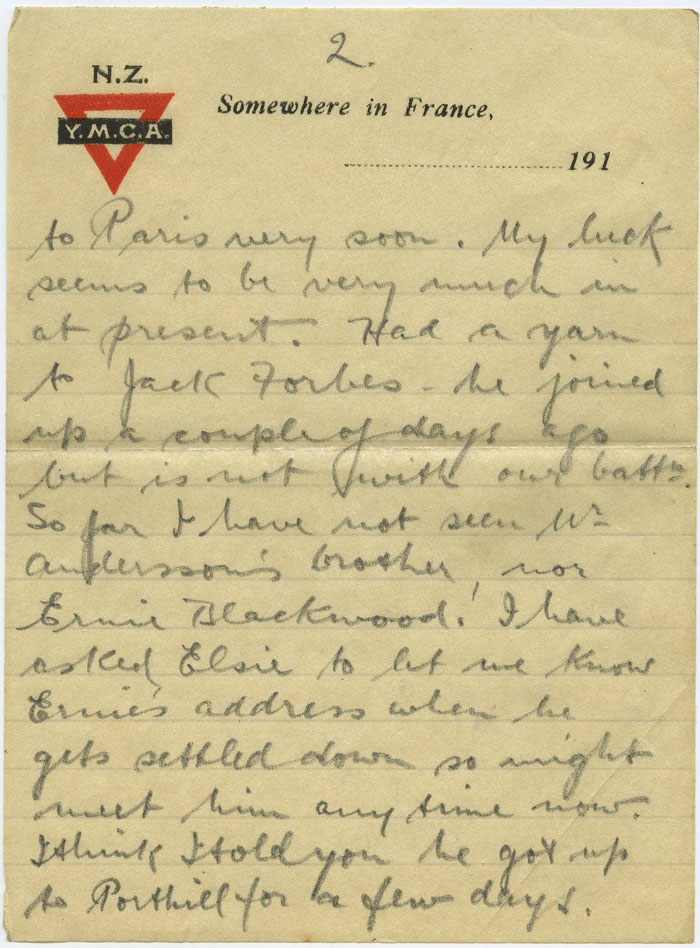 2.
N.Z.
Y.M.C.A.
Somewhere in France,
191
to Paris very soon. My luck
seems to be very much in
at present. Had a yarn
to Jack Forbes - he joined
up a couple of days ago
but is not with our battn.
So far I have not seen Wm
Andersson's brother, nor
Ernie Blackwood. I have
asked Elsie to let me know
Ernie's address when he
gets settled down so might
meet him any time now.
I think I told you he got up
to Porthill for a few days.